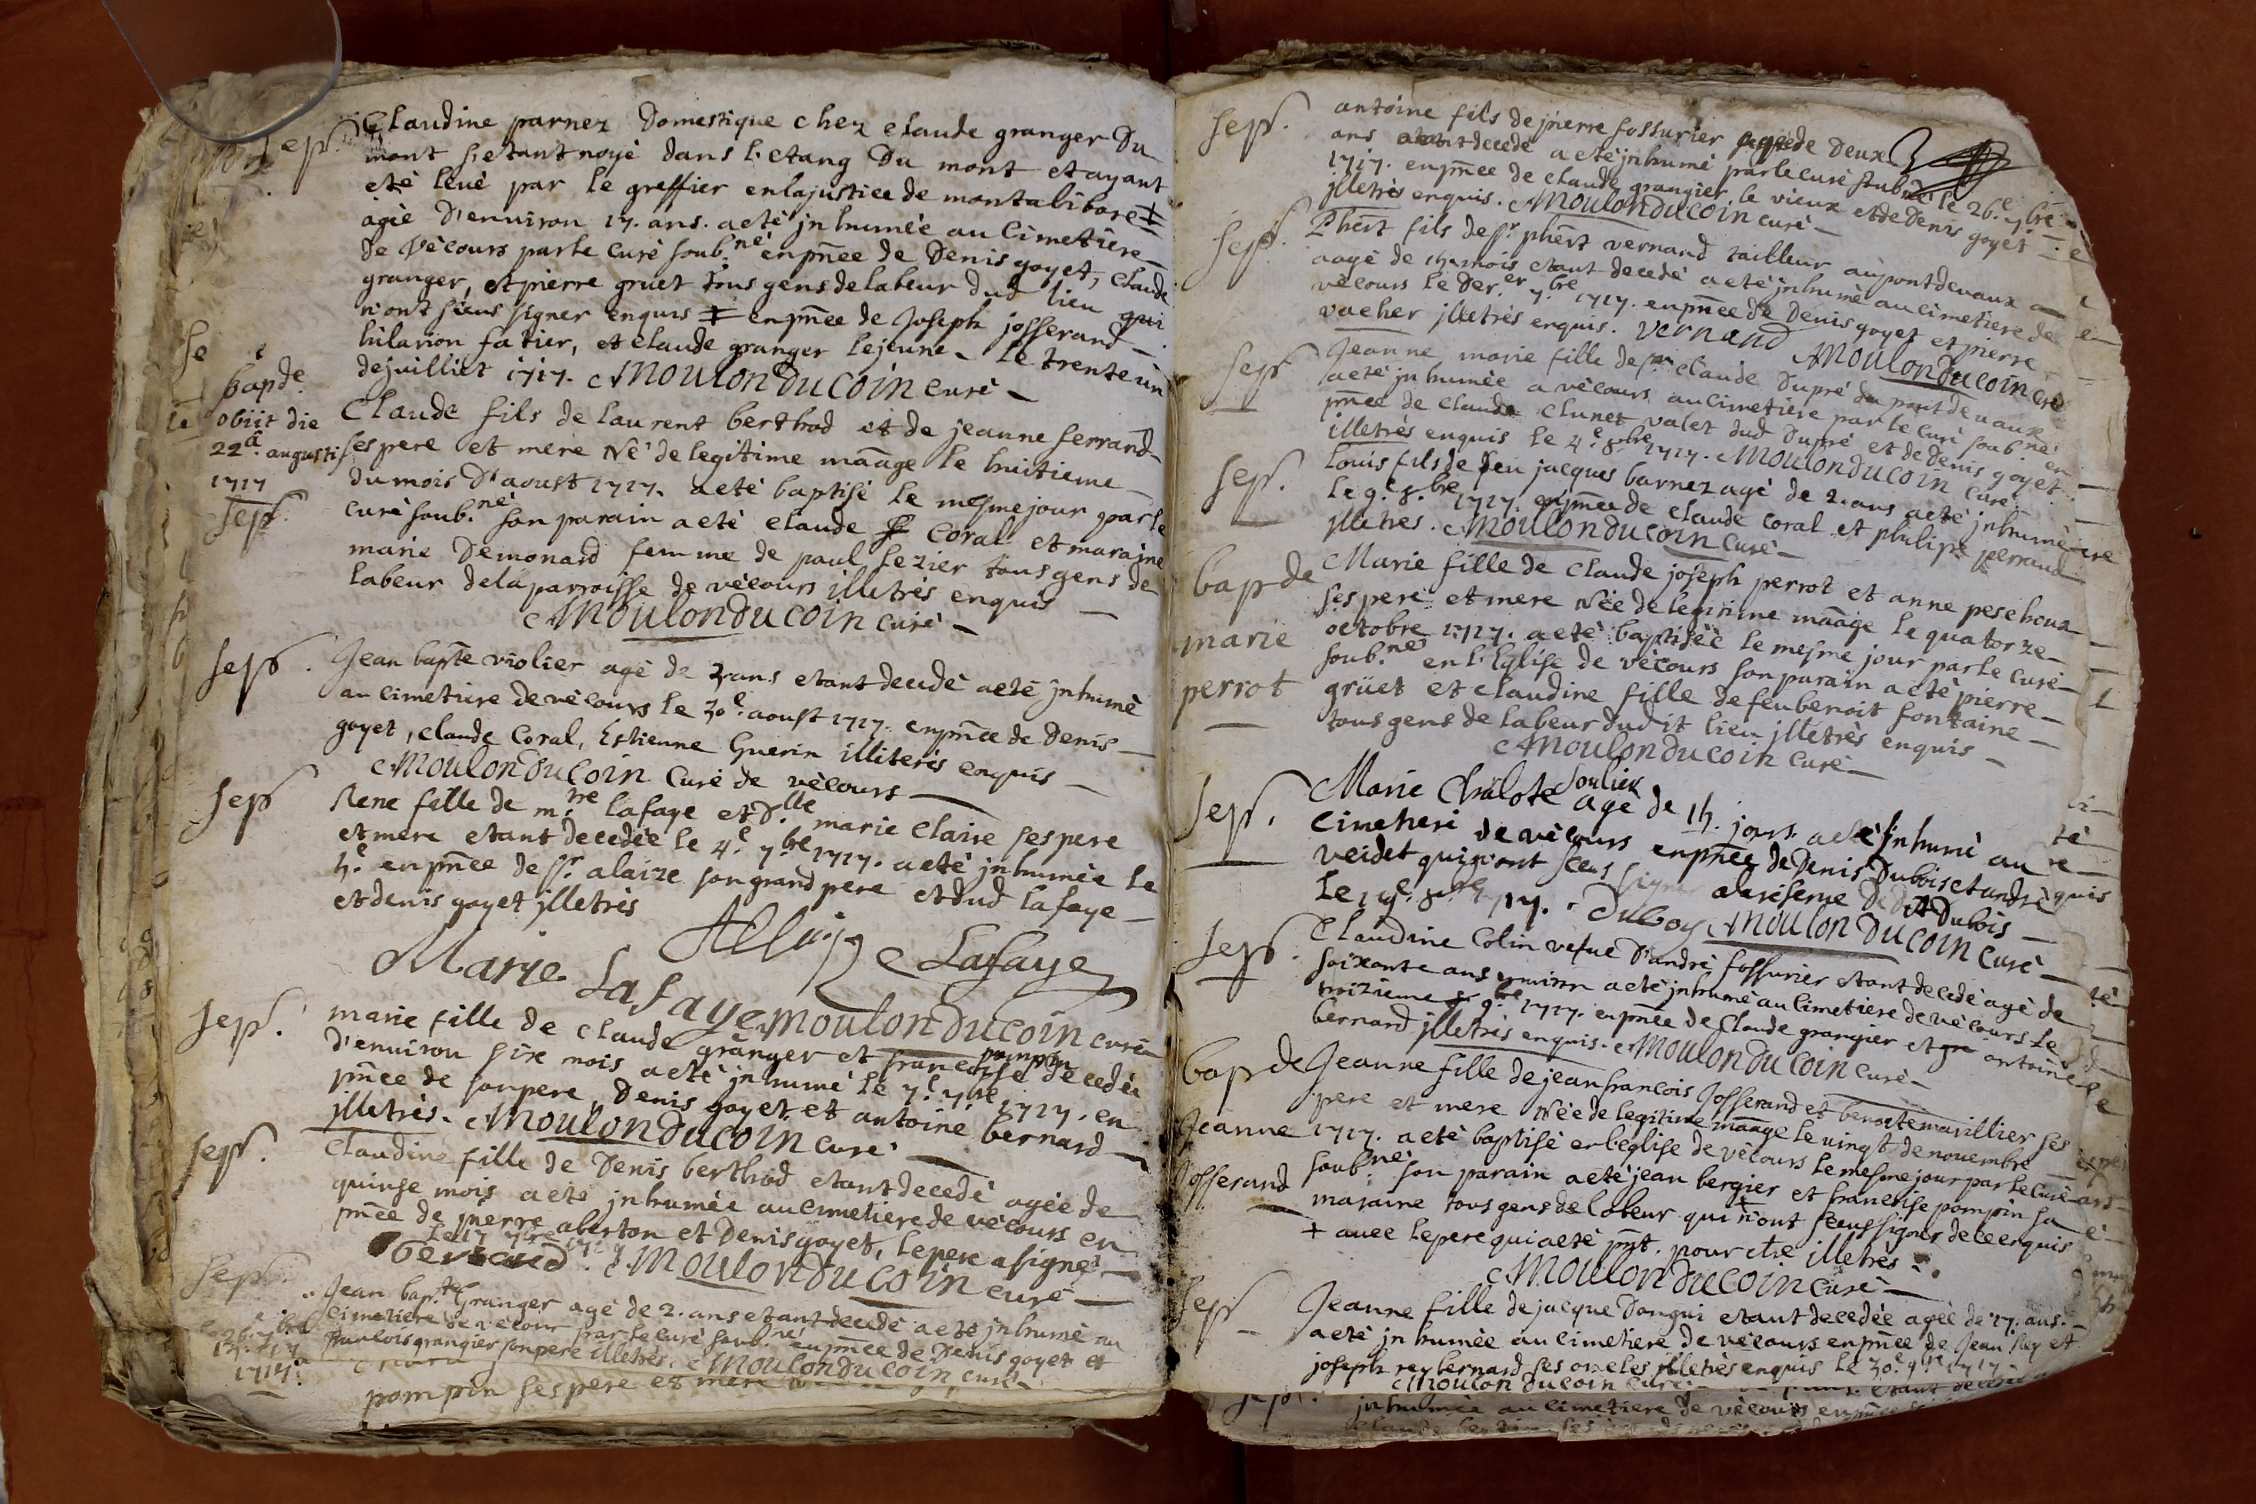 Sep. Claudine parnez Domestique chez claude granger Du
mont s'etant noyè dans l'etang Du mont et ayant
etè levè par le greffier en la justice de montalibore ‡
agèe D'environ 17. ans. a etè jnhumèe au Cimetiere
de Vècours par le Curè soub.nè en pñce de Denis goyet, Claude
granger, et pierre gruet tous gens de labeur dud lieu qui
n'ont sceus signer enquis ‡ en pñce de Joseph josserand
hilarion fatier, et claude granger le jeune. Le trente un
de juilliet 1717. Moulon Du Coin Curè
bap de
obiit die
22a. augusti
1717
Sep.
Claude fils de laurent berthod et de jeanne ferrand
ses pere et mere Nè de legitime mãage le huitieme
du mois D'aoust 1717. a etè baptisè le mesme jour par le
Curè soub.nè son parain a etè claude Coral et maraine
marie Demonard femme de paul lezier tous gens de
labeur de la parroisse de vècours illetrès enquis
Moulon Du Coin Curè
Sep. Jean bapte violier agè de 3 ans etant decedè a etè jnhumè
au cimetiere de vècours le 30e. aoust 1717. en pñce de Denis
goyet, claude Coral, Estienne Guerin illiterès enquis
Moulon Du Coin Curè de vècours
Sep Rene fille de m.tre lafaye et D.lle marie Claire ses pere
et mere etant decedèe le 4e. 7.bre 1717. a etè jnhumèe le
5e. en pñce de sr. alaize son grand pere et dud lafaye
et denis goyet jlletrès
Allaize Lafaye
Marie Lafaye Moulon Du Coin curè
Sep. marie fille de claude granger et francoise pompin decedèe
D'environ six mois a etè jnhumè le 7e. 7bre 1717. en
pñce de son pere, Denis goyet et antoine bernard
jlletrès. Moulon Du Coin curè
Sep. Claudine fille de Denis berthod etant decedè agèe de
quinze mois a etè jnhumèe au cimetiere de vècours en
pñce de pierre alerton et Denis goyet, le pere a signè
le 17 7bre 1717
Bertod. Moulon Du Coin curè
Sep. Jean bap.te Granger agè de 2. ans etant decedè a etè jnhumè au
Cimetiere de vècour par le curè soub.nè en pñce de Denis goyet et
francois grangier son pere illetrès. Moulon Du Coin curè
1717.
pompin ses pere et mere
Sep. antoine fils de pierre fossurier agè de Deux
ans etant decedè a etè jnhumè par le curè soub.nè le 26e. 7bre
1717. en pñce de claude grangier le vieux et de Denis goyet
jlletrès enquis. Moulon Du Coin curè
Sep. Phert fils de sr phert vernand tailleur au pont de vaux
aagè de mois etant decedè a etè jnhumè au cimetiere de
vècours le Der.er 7.bre 1717. en pñce de Denis goyet et pierre
vacher jlletrès enquis. vernand Moulon Du Coin Cré
Sep Jeanne marie fille de claude Dupré du pont de vaux
a etè jnhumèe a vècours au cimetiere par le curè soub.nè en
pñce de claude clunet valet dud Dupré et de Denis goyet
illetrès enquis le 4e. 8bre 1717. Moulon Du Coin Curè
Sep. Louis fils de feu jacques barnez agè de 2. ans a etè jnhumè
le 9e. 8.bre 1717. en pñce de claude Coral et philipe perraud
jlletres. Moulon Du Coin Curè
bap de
marie
perrot
Marie fille de Claude joseph perrot et anne pesehoux
ses pere et mere Nèe de legitime mãage le quatorze
octobre 1717. a etè baptisèe le mesme jour par le Curè
soub.nè en l'Eglise de vècours son parain a etè pierre
grüet et claudine fille de feu benoit fontaine
tous gens de labeur dudit lieu jlletrès enquis
Moulon Du Coin Curè
Sep. Marie Chalote soulier agè de 15. jours a etè jnhumè au
Cimetiere de vècours en pñce de Denis Dubois et andrè
veidet qui n'ont sceus signer a la reserve Dud Dubois
le 19e. 8.bre 1717. Duboy Moulon Du Coin Curè
Sep. Claudine Colin vefue D'andrè fossurier etant decedè agè de
soixante ans environ a etè jnhumè au Cimetiere de vècours le
troizieme 9.bre 1717. en pñce de claude grangier et antoine
bernard jlletrès enquis. Moulon Du Coin Curè
bap de
Jeanne
Josserand
Jeanne fille de jean francois Josserand et benoite marillier ses
pere et mere Nèe de legitime mãage le vingt de novembre
1717. a etè baptisè en l'eglise de vècours le mesme jour par le Curè
soub.nè son parain a etè jean bergier et francoise pompin sa
maraine tous gens de labeur qui n'ont sceus signer de ce enquis
‡ avec le pere qui a etè pñt. pour etre illetrès
Moulon Du Coin Curè
Sep Jeanne fille de jacque Dangui etant decedèe agèe de 17. ans.
a etè jnhumèe au cimetiere de vècours en pñce de Jean Rey et
joseph rey bernard ses oncles jlletrès enquis le 30e. 9bre 1717
Moulon Du Coin Curè
jnhumèe au cimetiere de vècours en pñce